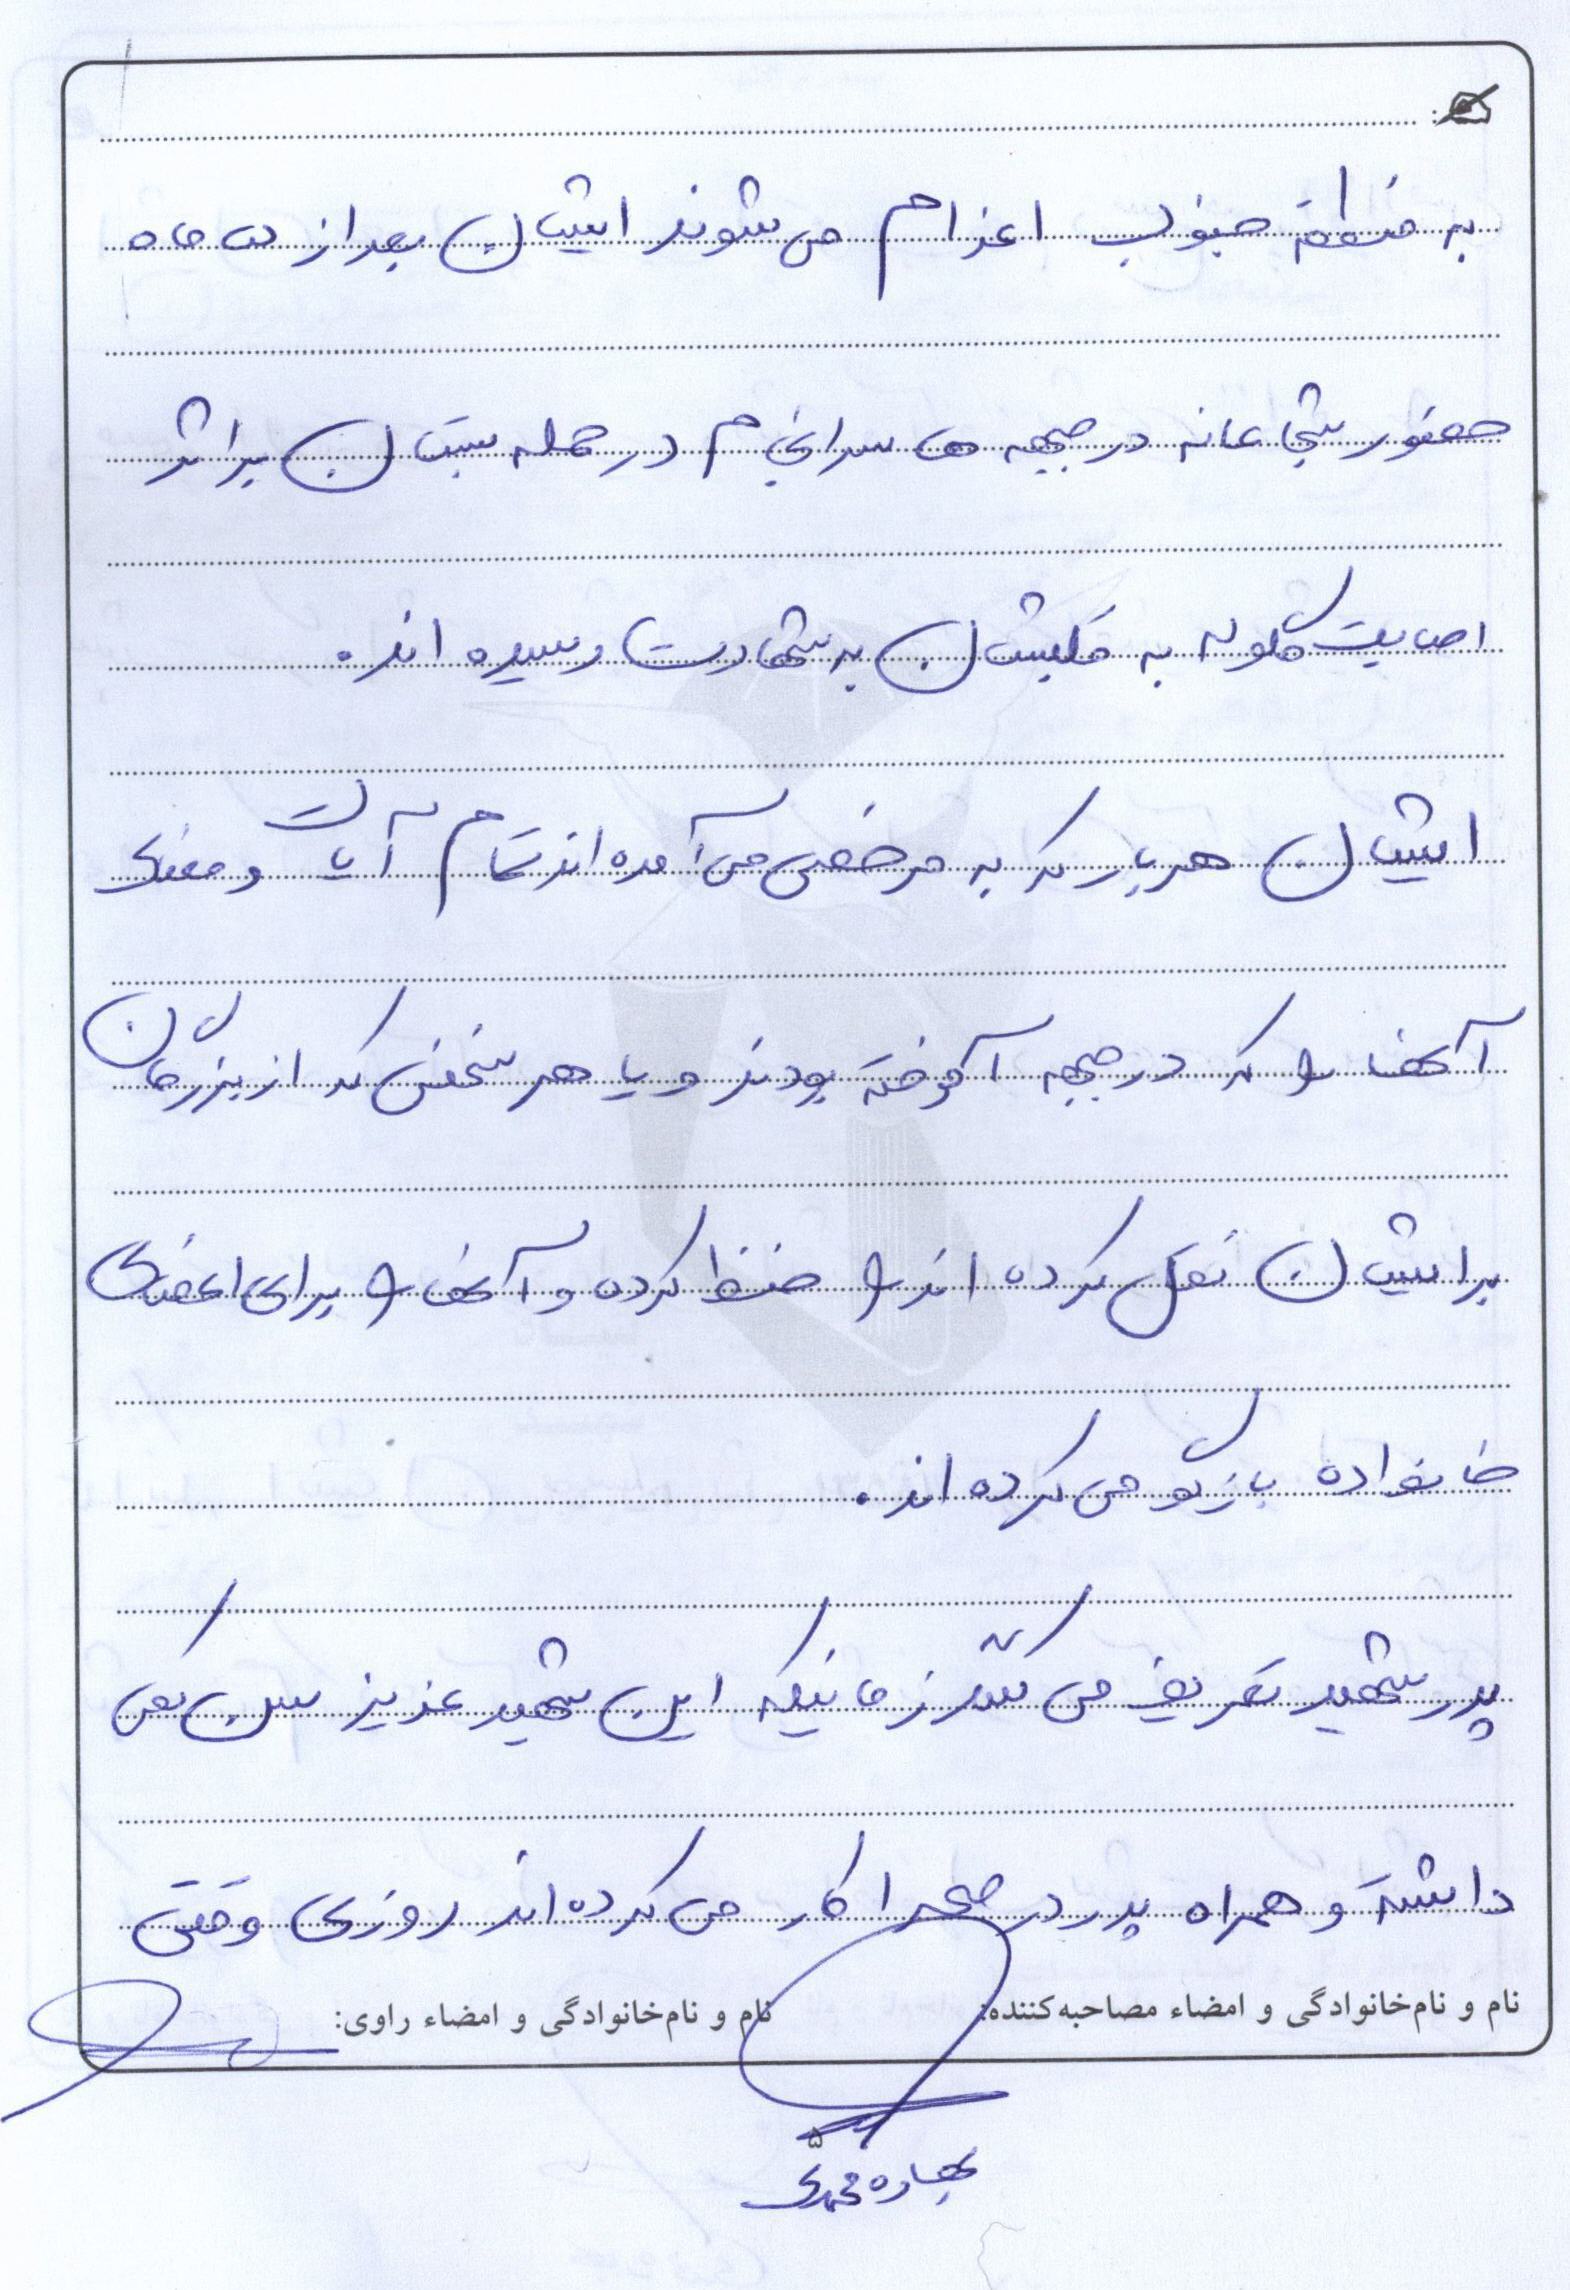 به منطقه جنوب اعزام می شوند ایشان بعد از ماه
حضور شجاعانه در جبهه ها سرانجام در حمله بستان بر اثر
اصابت گلوله به قلبشان به شهادت رسیده اند.
ایشان هر بار که به مرخصی می آمده اند تمام آیات و معنای
آنها را که در جبهه آموخته بودند و یا هر سخنی که از بزرگان
برایشان نقل کرده اند را حفظ کرده و آنها را برای اعضای
خانواده بازگو می کرده اند.
پدر شهید تعریف می کنند زمانیکه این شهید عزیز سن کمی
داشته و همراه پدر در صحرا کار می کرده اند روزی وقتی
نام و نام‌خانوادگی و امضاء مصاحبه‌کننده: نام و نام‌خانوادگی و امضاء راوی:
۵
بهاره محمدی